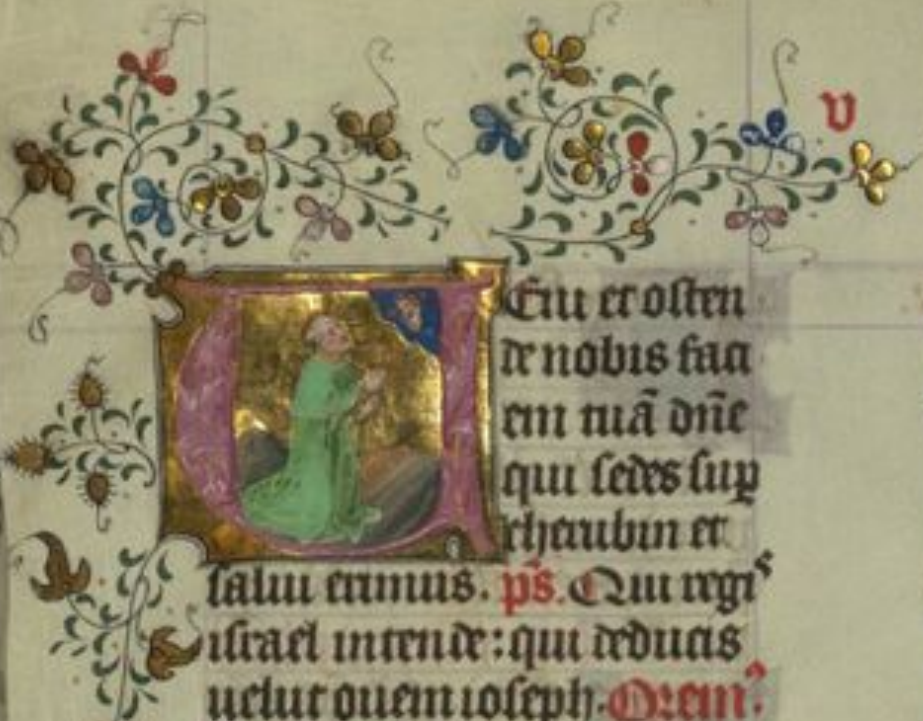 v
VEni et osten
de nobis faci
em tuā dn̄e
qui sedes suꝑ
cherubin et
salui erimus. ps̄. Qui regis
israel intende: qui deducis
uelut ouem ioseph. Orem⁹